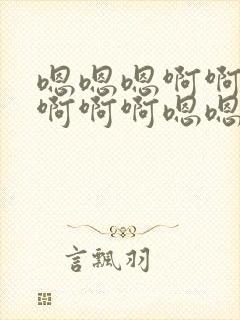 嗯嗯嗯啊啊
啊啊啊嗯嗯
言飘羽